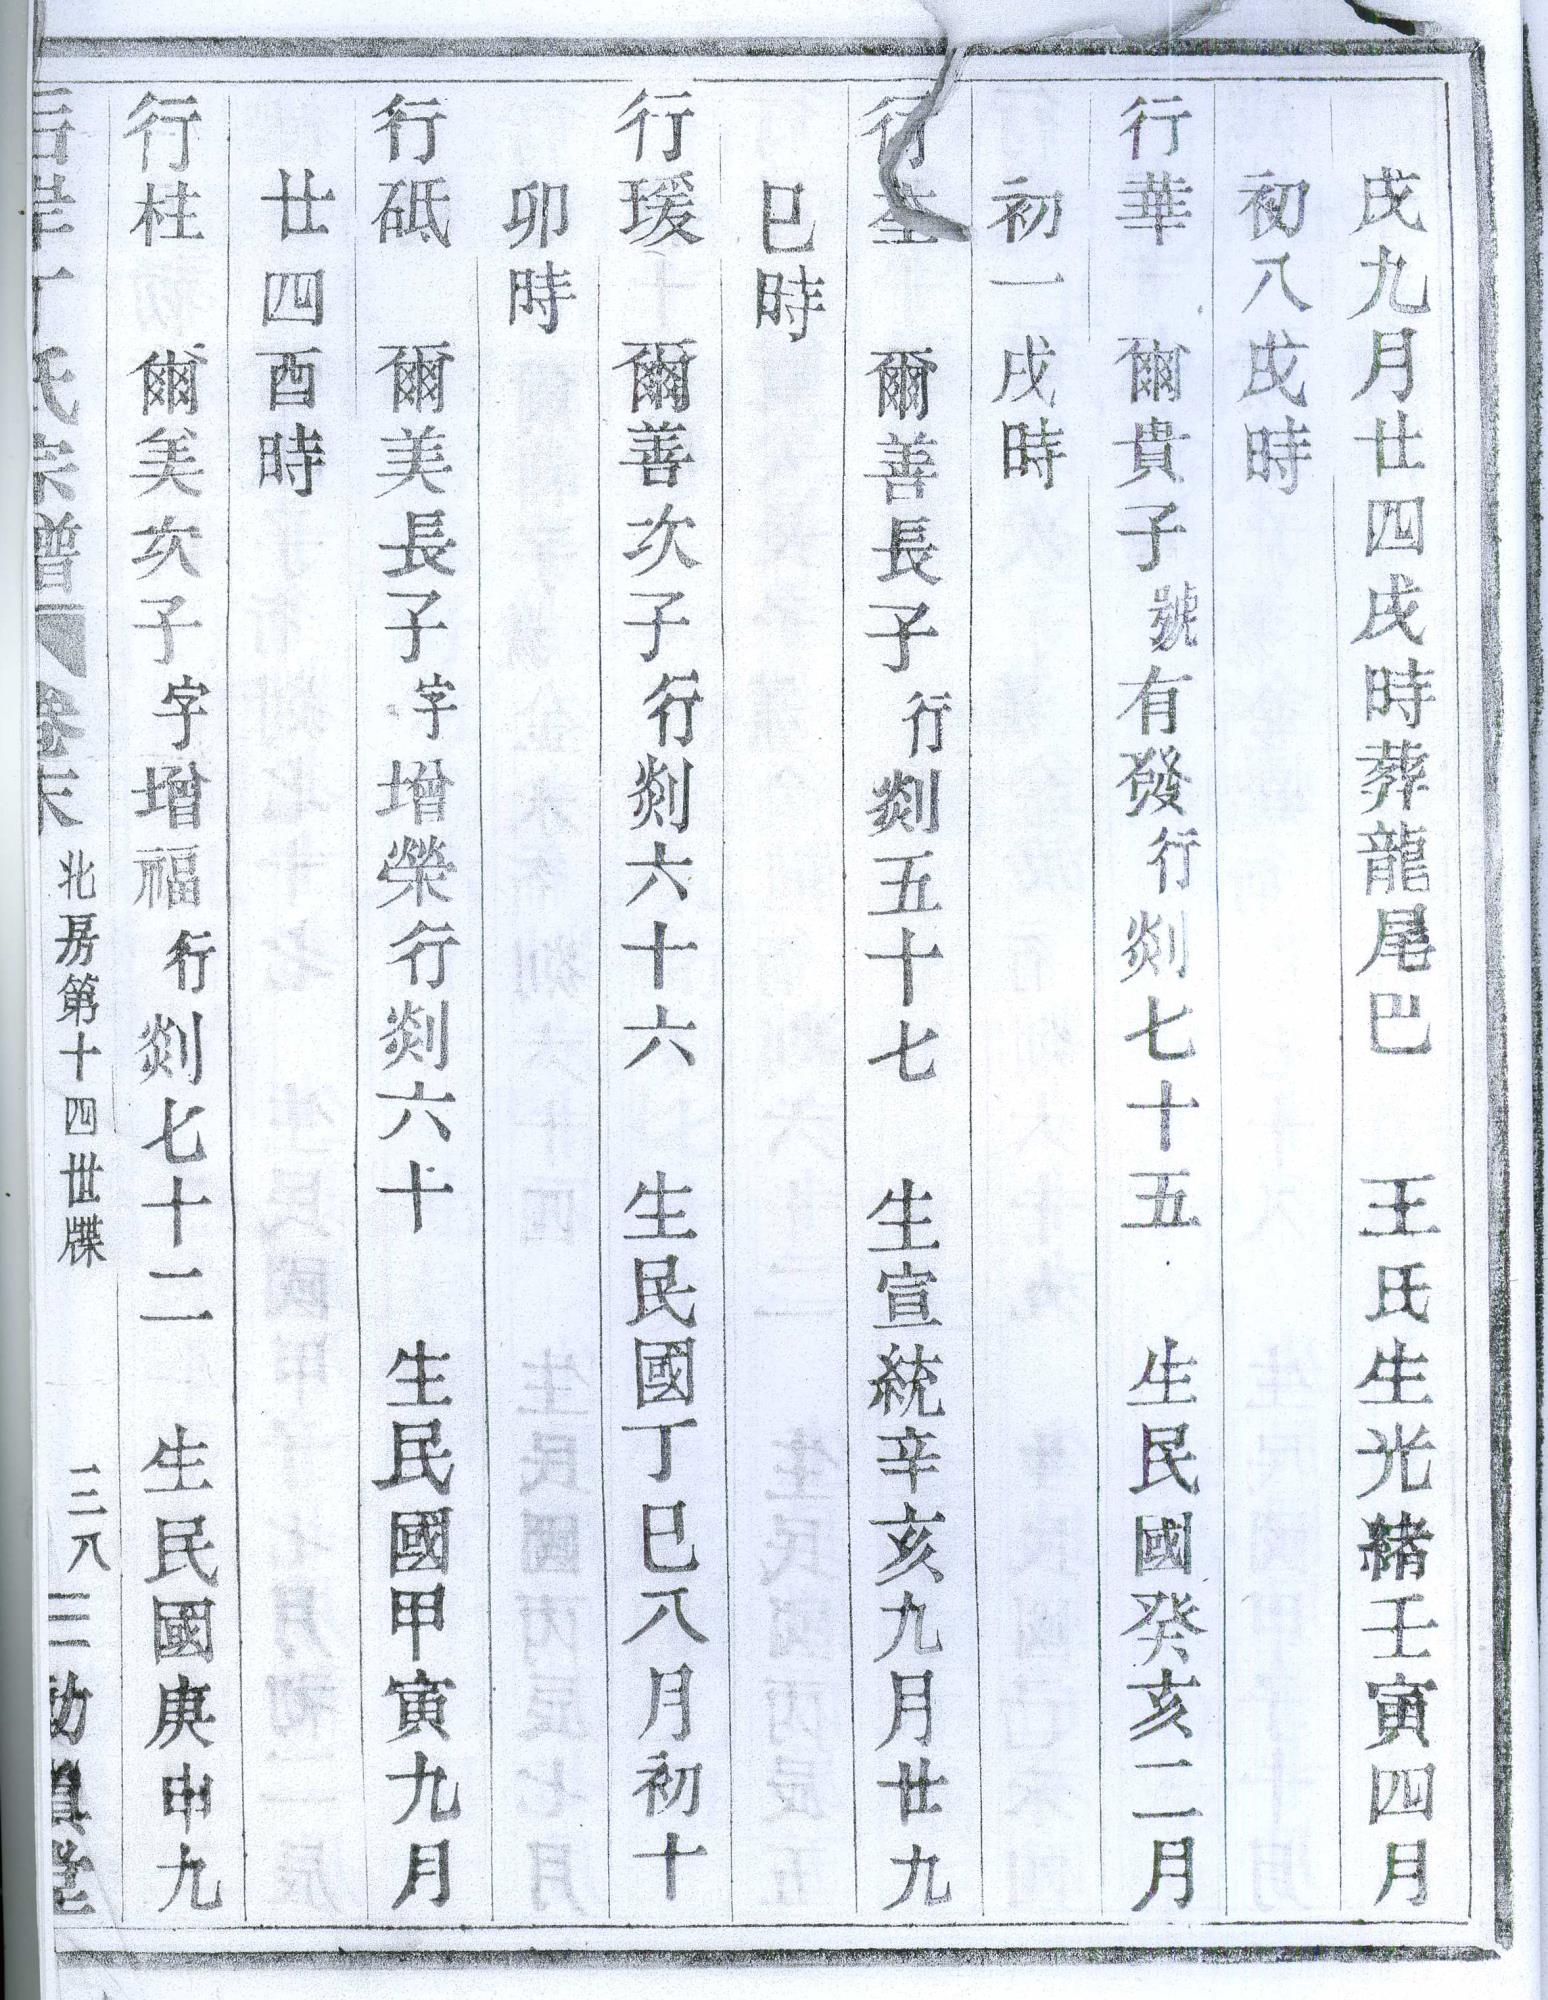 戌九月廿四戌時葬龍尾巴　王氏生光緒壬寅四月
初八戌時
行華　爾貴子號有發行剡七十五　生民國癸亥二月
初一戌時
行　爾善長子行剡五十七　生宣統辛亥九月廿九
巳時
行瑗　爾善次子行剡六十六　生民國丁巳八月初十
卯時
行砥　爾美長子字增榮行剡六十　生民國甲寅九月
廿四酉時
行柱　爾美次子字增福行剡七十二　生民國庚申九
氏宗譜　卷末　北房第十四世牒　三八三　堂